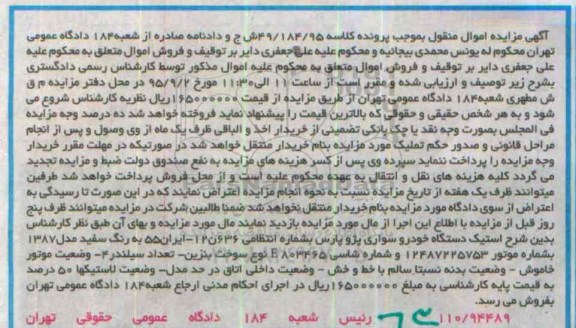 آگهی مزایده اموال منقول بموجب پرونده کلاسه ۴۹/۱۸۴/۹۵ش ج و دادنامه صادره از شعبه۱۸۴ دادگاه عمومی
تهران محکوم له یونس محمدی بیجانیه و محکوم علیه علی جعفری دایر بر توقیف و فروش اموال متعلق به محکوم علیه
علی جعفری دایر بر توقیف و فروش اموال متعلق به محکوم علیه اموال مذکور توسط کارشناس رسمی دادگستری
بشرح زیر توصیف و ارزیابی شده و مقرر است از ساعت ۱۱ الی۱۱:۳۰ مورخ ۹۵/۹/۲ در محل دفتر مزایده م ق
ش مطهری شعبه۱۸۴ دادگاه عمومی تهران از طریق مزایده از قیمت ۱۶۵۰۰۰۰۰۰ریال نظریه کارشناس شروع می
شود و به هر شخص حقیقی و حقوقی که بالاترین قیمت را پیشنهاد نماید فروخته خواهد شد ده درصد وجه مزایده
فی المجلس بصورت وجه نقد یا چک بانکی تضمینی از خریدار اخذ و الباقی ظرف یک ماه از وی وصول و پس از انجام
مراحل قانونی و صدور حکم تملیک مورد مزایده بنام خریدار منتقل خواهد شد در صورتیکه در مهلت مقرر خریدار
وجه مزایده را پرداخت ننماید سپرده وی پس از کسر هزینه های مزایده به نفع صندوق دولت ضبط و مزایده تجدید
می گردد کلیه هزینه های نقل و انتقال به عهده محکوم علیه است و از محل فروش پرداخت خواهد شد طرفین
میتوانند ظرف یک هفته از تاریخ مزایده نسبت به نحوه انجام مزایده اعتراض نمایند که در این صورت تا رسیدگی به
اعتراض از سوی دادگاه مورد مزایده بنام خریدار منتقل نخواهد شد ضمنا طالبین شرکت در مزایده میتوانند ظرف پنج
روز قبل از مزایده با اطلاع این اجرا از مال مورد مزایده بازدید نمایند مال مورد مزایده و بهای آن طبق نظر کارشناس
بدین شرح استیک دستگاه خودرو سواری پژو پارس بشماره انتظامی ۶۳۶ن۱۲-ایران۵۵ به رنگ سفید مدل۱۳۸۷
بشماره موتور ۱۲۴۸۷۲۲۵۷۵۳ و شماره شاسی E۸۰۳۴۶۵ نوع سوخت بنزین- تعداد سیلندر۴- وضعیت موتور
خاموش - وضعیت بدنه نسبتا سالم با خط و خش - وضعیت داخلی اتاق در حد مدل- وضعیت لاستیکها ۵۰ درصد
به قیمت پایه کارشناسی به مبلغ ۱۶۵۰۰۰۰۰۰ریال در اجرای احکام مدنی ارجاع شعبه۱۸۴ دادگاه عمومی تهران
بفروش می رسد.
۱۱۰/۹۴۴۸۹ رئیس شعبه ۱۸۴ دادگاه عمومی حقوقی تهران